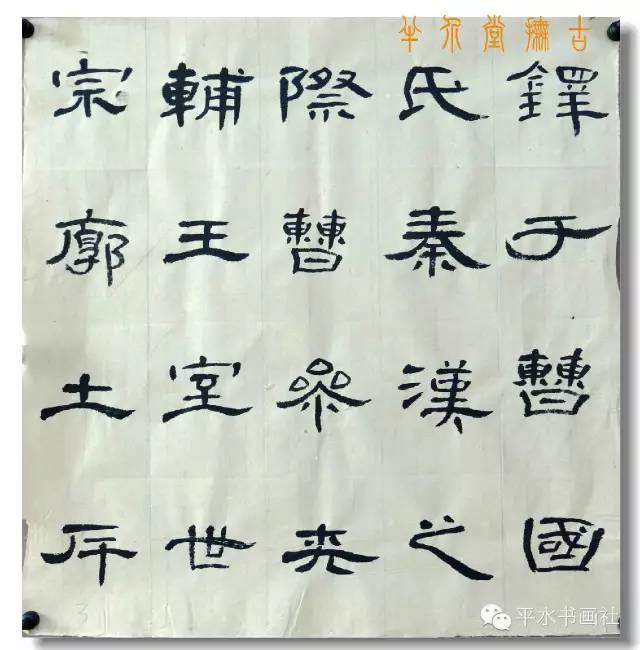 半堂撫古
鐸于曹國
氏秦漢之
際曹參夾
輔王室世
宗廓土斥
3
平水书画社